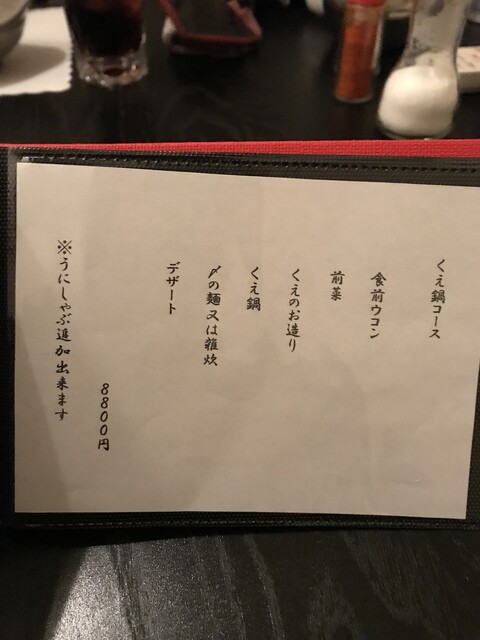 くえ鍋コース
食前ウコン
前菜
くえのお造り
くえ鍋
〆の麺又は雑炊
デザート
8800円
※うにしゃぶ追加出来ます